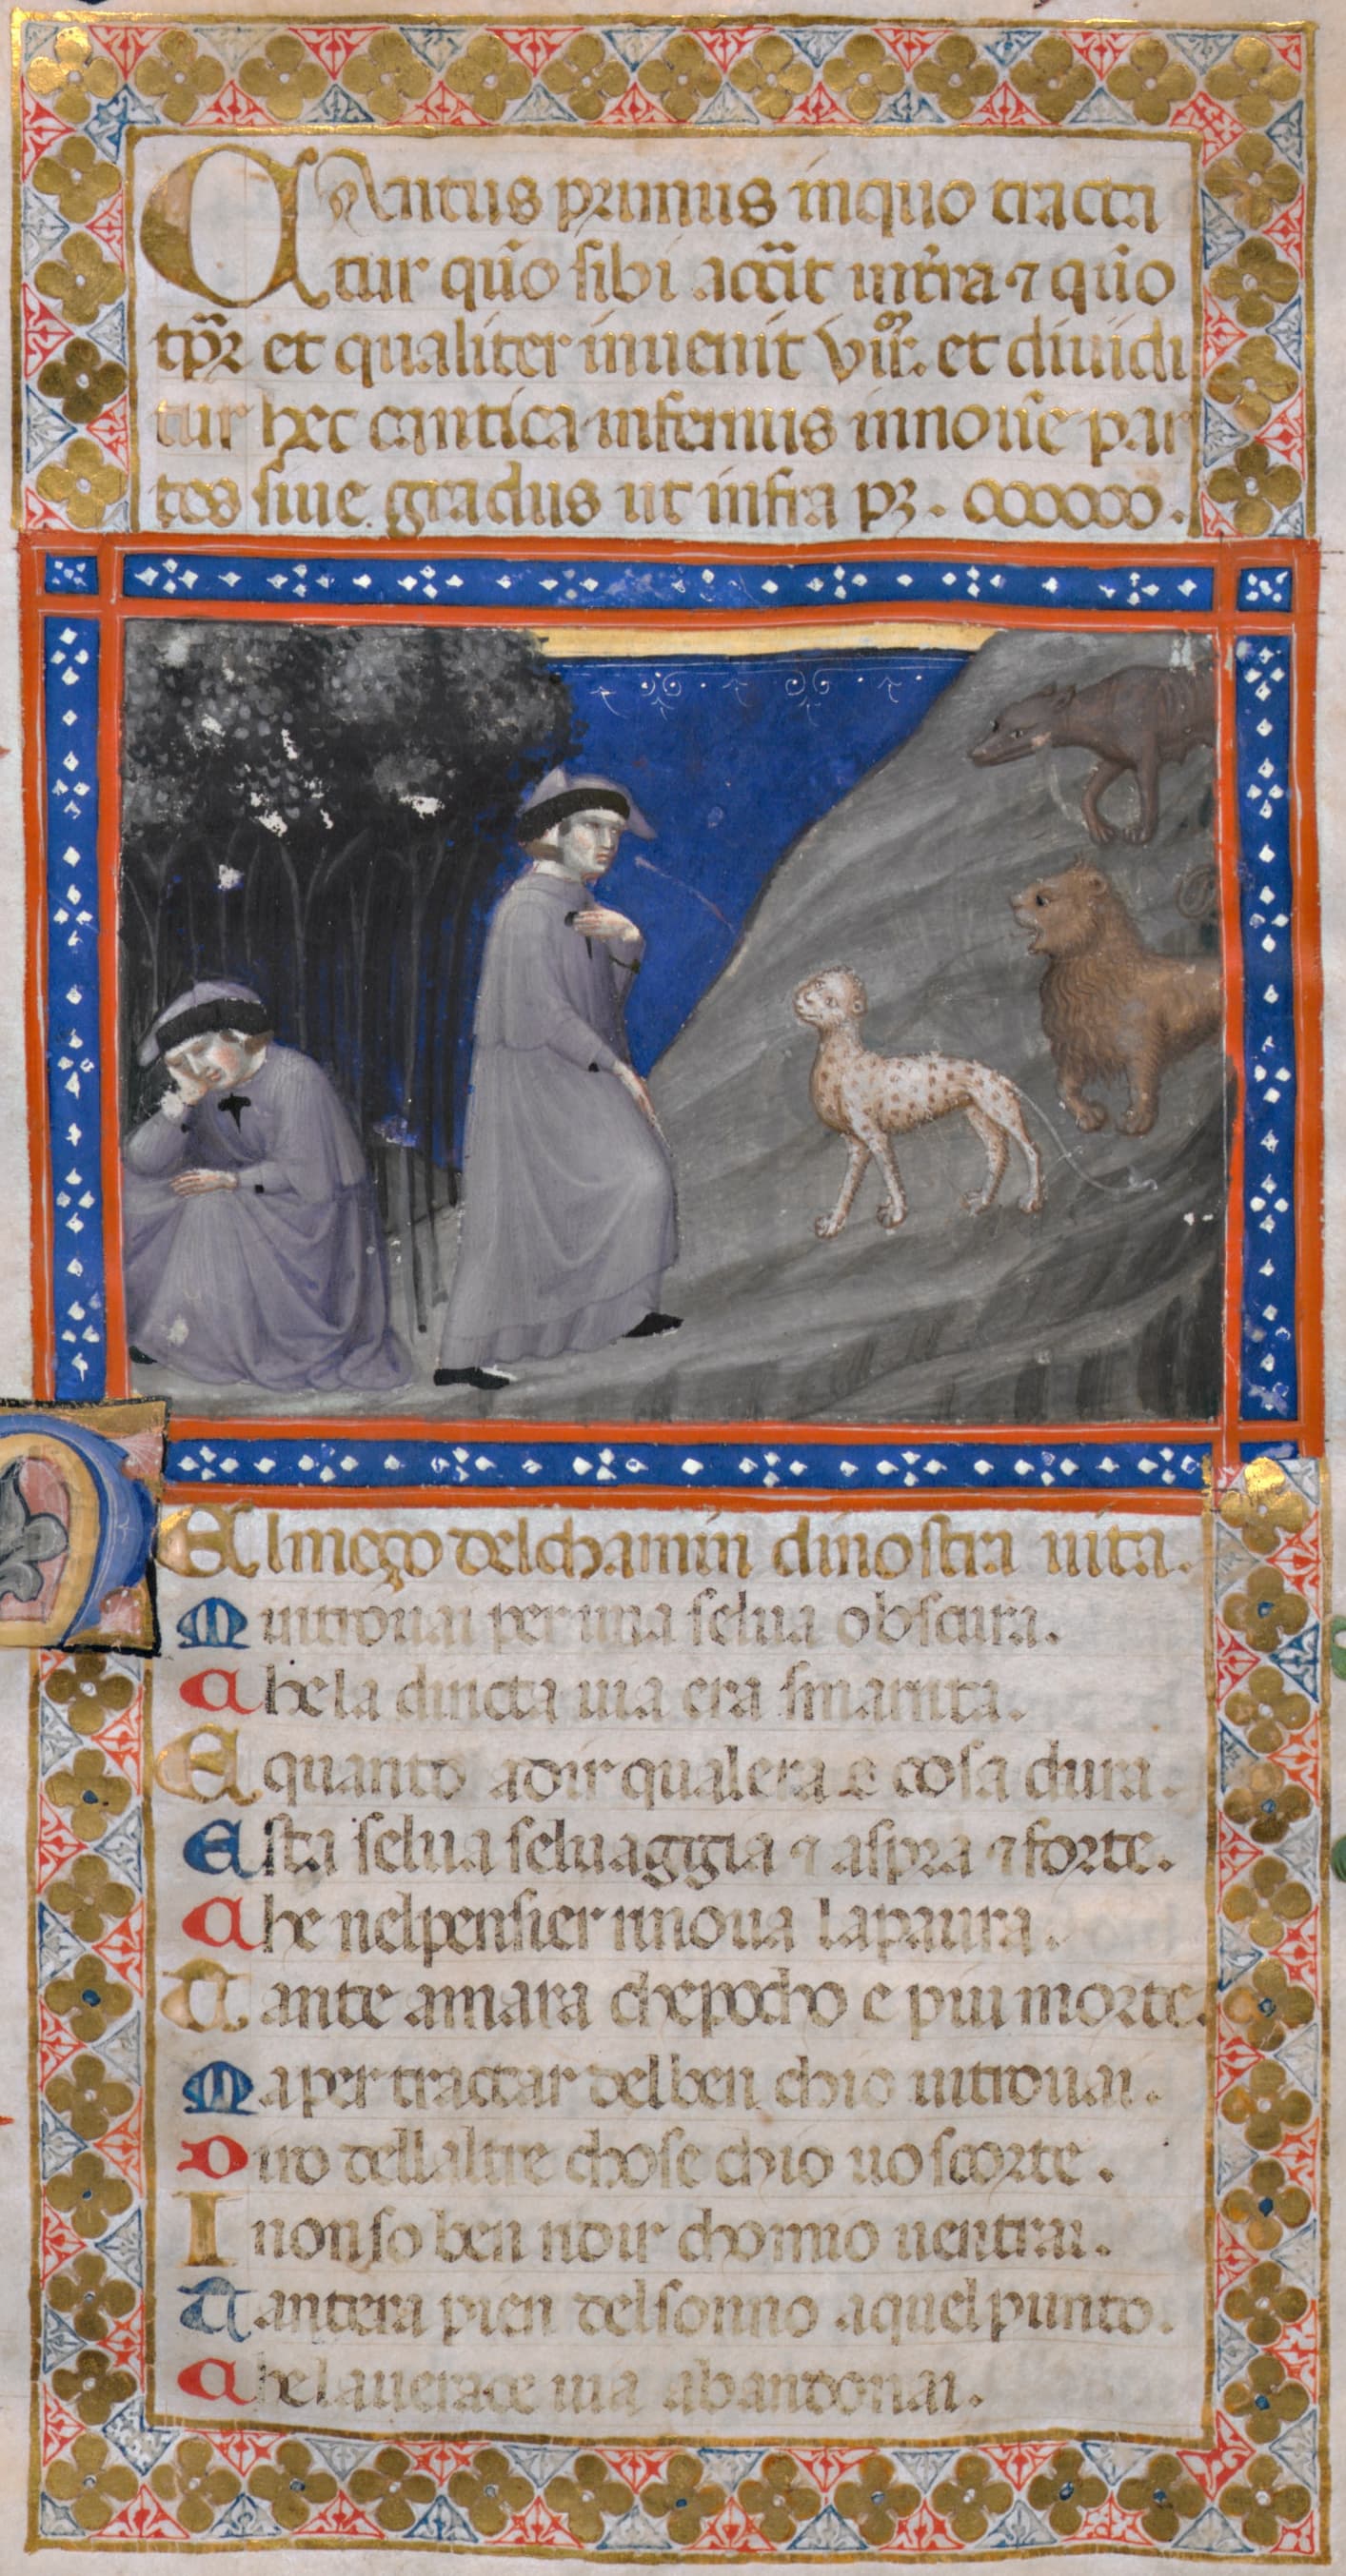 CAntus primus inquo tracta
tur quō sibi accīt intrā ⁊ quō
et qualiter inuenit vir̄. et diuidi
tur hec cantica infernus innoūe par
tes siue gradus ut infra pꝫ.
NEl meço delchamin dinostra uita.
Mi ritrouai per una selua obscura.
Che la diricta uia era smarrita.
E quanto adir qualera e cosa dura.
Esta selua seluaggia ⁊ aspra ⁊ forte.
Che nelpensier rinoua lapaura.
Tante amara chepocho e piu morte.
Ma per tractar delben chio uitrouai.
Diro dellaltre chose chio uo scorte.
I non so ben ridir chomio uentrai.
Tantera pien delsonno aquel punto.
Che lauerace uia abandonai.